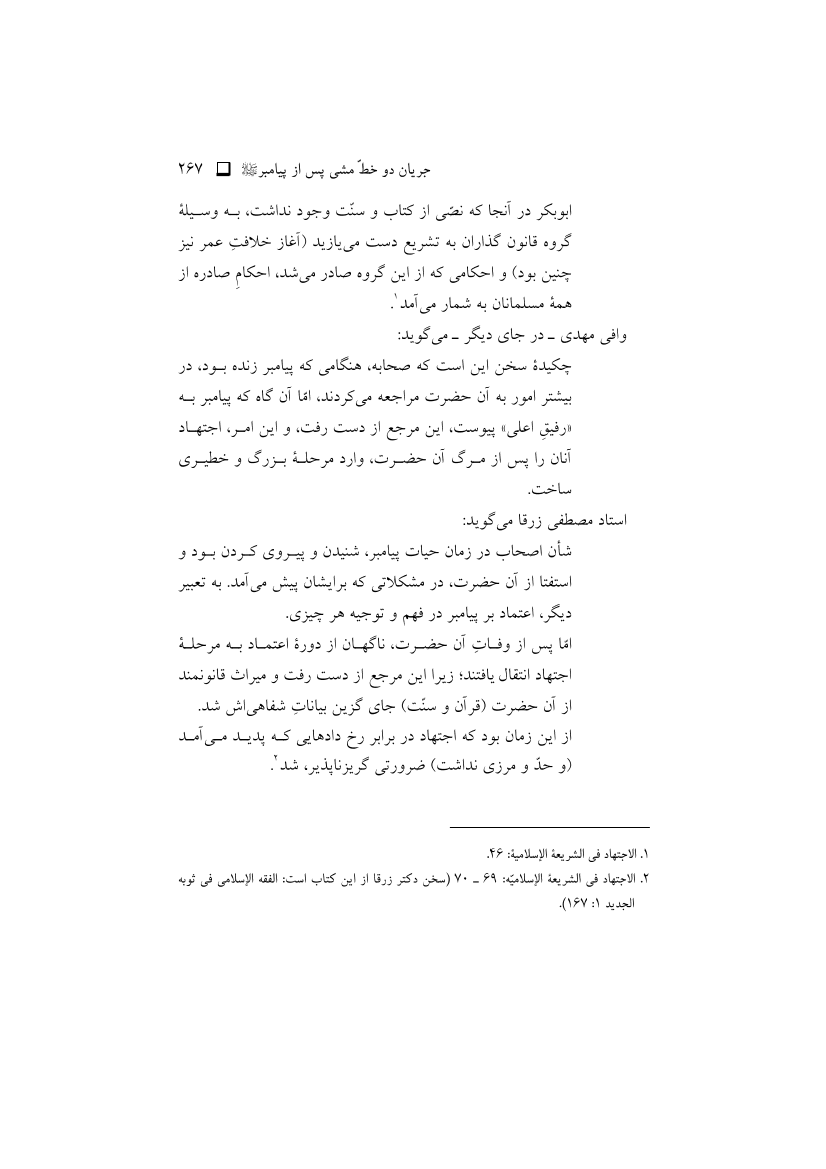 جریان دو خطّ مشی پس از پیامبرﷺ ❑ ۲۶۷
ابوبکر در آنجا که نصّی از کتاب و سنّت وجود نداشت، بـه وسـیلهٔ
گروه قانون گذاران به تشریع دست می‌یازید (آغاز خلافتِ عمر نیز
چنین بود) و احکامی که از این گروه صادر می‌شد، احکامِ صادره از
همهٔ مسلمانان به شمار می‌آمد۱.
وافی مهدی ـ در جای دیگر ـ می‌گوید:
چکیدهٔ سخن این است که صحابه، هنگامی که پیامبر زنده بـود، در
بیشتر امور به آن حضرت مراجعه می‌کردند، امّا آن گاه که پیامبر بـه
«رفیقِ اعلی» پیوست، این مرجع از دست رفت، و این امـر، اجتهـاد
آنان را پس از مـرگ آن حضـرت، وارد مرحلـهٔ بـزرگ و خطیـری
ساخت.
استاد مصطفی زرقا می‌گوید:
شأن اصحاب در زمان حیات پیامبر، شنیدن و پیـروی کـردن بـود و
استفتا از آن حضرت، در مشکلاتی که برایشان پیش می‌آمد. به تعبیر
دیگر، اعتماد بر پیامبر در فهم و توجیه هر چیزی.
امّا پس از وفـاتِ آن حضـرت، ناگهـان از دورهٔ اعتمـاد بـه مرحلـهٔ
اجتهاد انتقال یافتند؛ زیرا این مرجع از دست رفت و میراث قانونمند
از آن حضرت (قرآن و سنّت) جای گزین بیاناتِ شفاهی‌اش شد.
از این زمان بود که اجتهاد در برابر رخ دادهایی کـه پدیـد مـی‌آمـد
(و حدّ و مرزی نداشت) ضرورتی گریزناپذیر، شد۲.
۱. الاجتهاد فی الشریعة الإسلامیة: ۴۶.
۲. الاجتهاد فی الشریعة الإسلامیّه: ۶۹ ـ ۷۰ (سخن دکتر زرقا از این کتاب است: الفقه الإسلامی فی ثوبه
الجدید ۱: ۱۶۷).